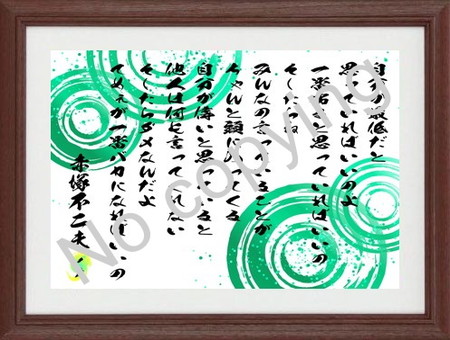 自分が最低だと
思っていればいいのよ
一番弱いと思っていればいいの
そしたらね
みんなの言っていることが
ちゃんと頭に入ってくる
自分が偉いと思っていると
他人は何も言ってくれない
そしたらダメなんだよ
てめぇが一番バカになればいいの
赤塚不二夫
No copying